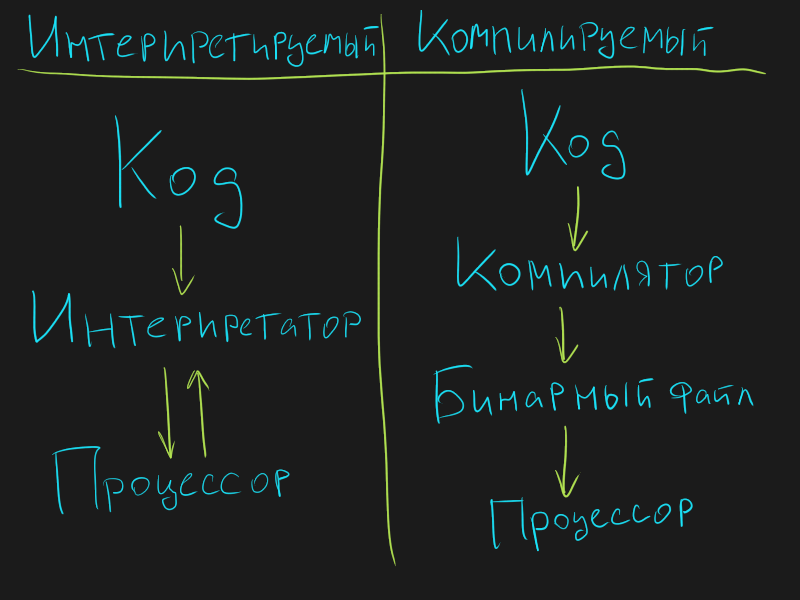 Интерпретируемый
Код
Интерпретатор
Процессор
Компилируемый
Код
Компилятор
Бинарный файл
Процессор